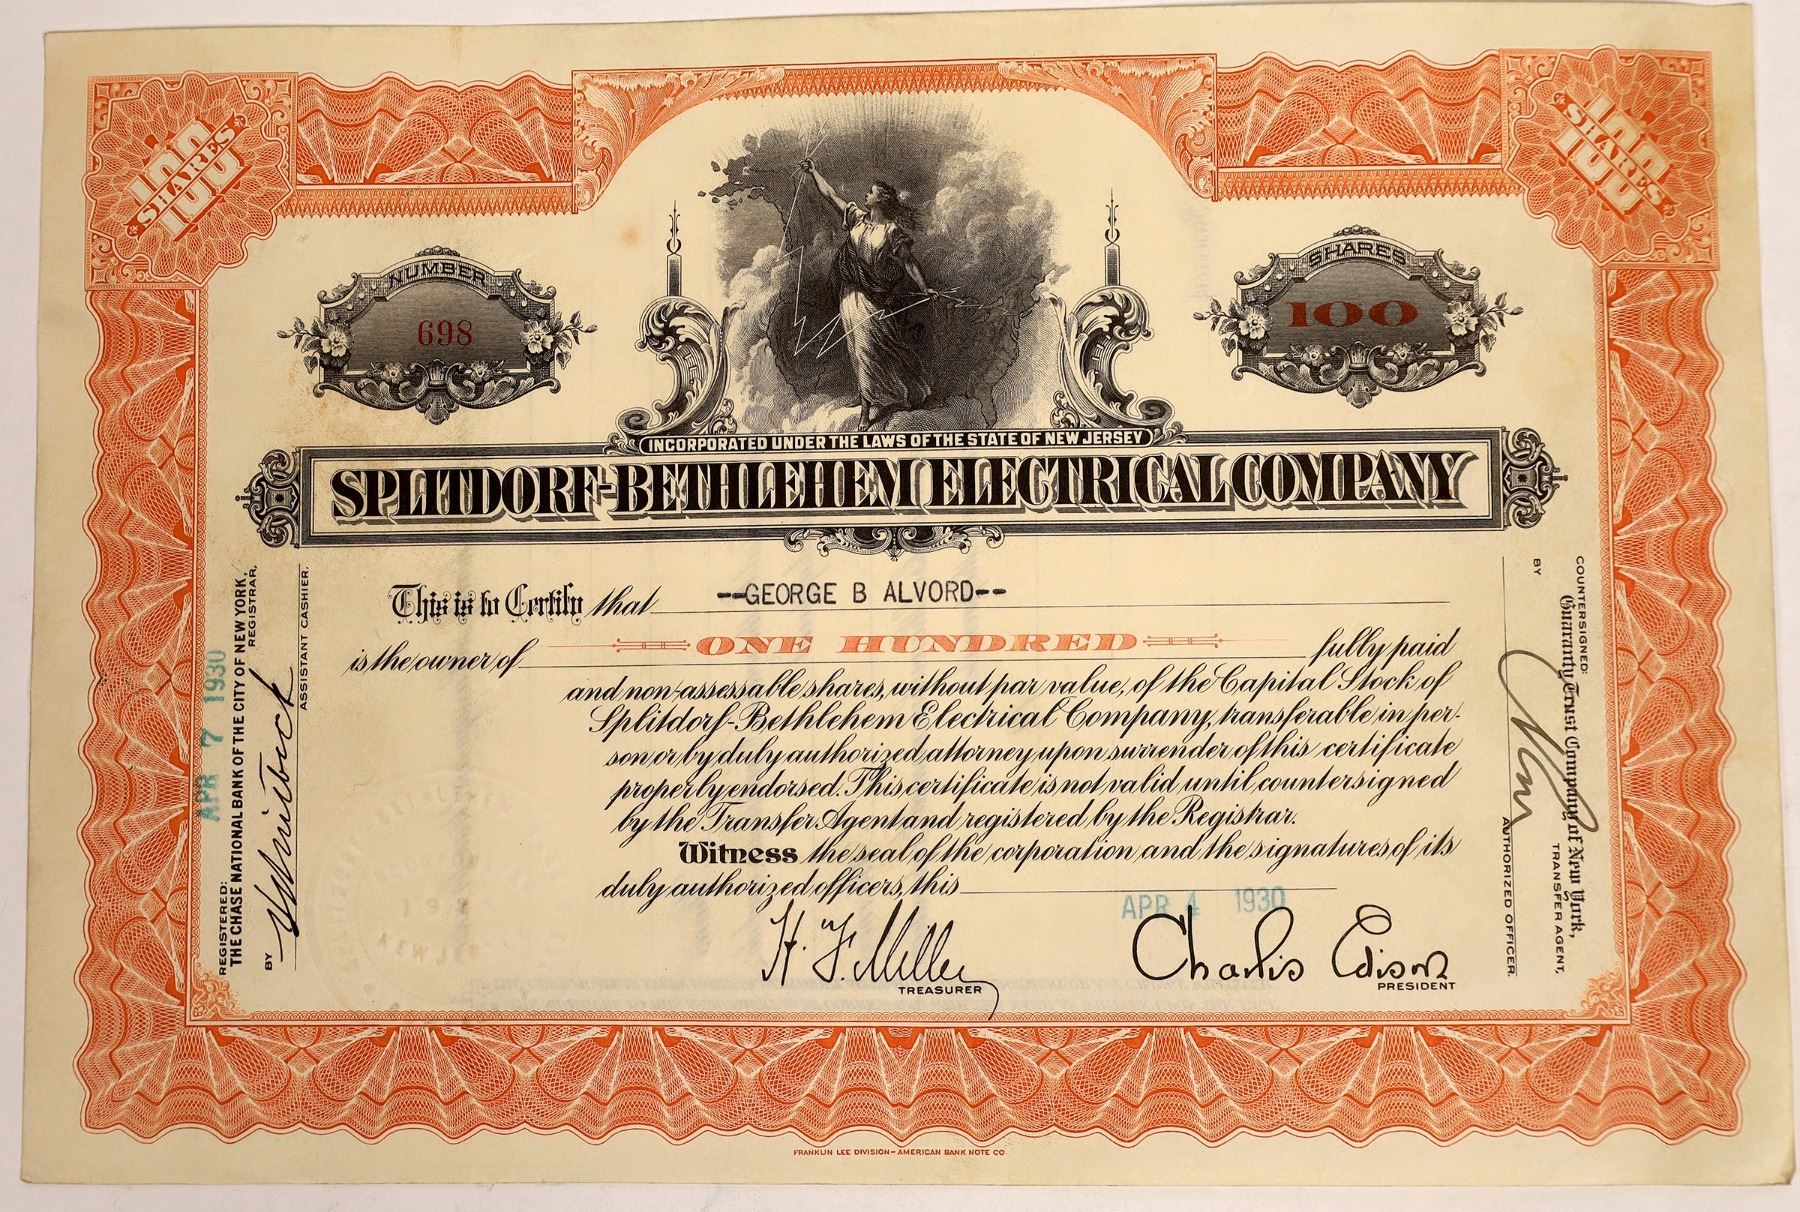 100
SHARES
100
SHARES
NUMBER
698
SHARES
100
INCORPORATED UNDER THE LAWS OF THE STATE OF NEW JERSEY
SPLITDORF-BETHLEHEM ELECTRICAL COMPANY
This is to Certify that --GEORGE B ALVORD--
is the owner of ONE HUNDRED fully paid
and non-assessable shares, without par value, of the Capital Stock of
Splitdorf-Bethlehem Electrical Company, transferable in per-
son or by duly authorized attorney upon surrender of this certificate
properly endorsed. This certificate is not valid until countersigned
by the Transfer Agent and registered by the Registrar.
Witness the seal of the corporation and the signatures of its
duly authorized officers, this APR 4 1930
H. F. Miller
TREASURER
Charles Edison
PRESIDENT
REGISTERED:
THE CHASE NATIONAL BANK OF THE CITY OF NEW YORK,
REGISTRAR,
APR 7 1930
BY
ASSISTANT CASHIER.
COUNTERSIGNED:
Guaranty Trust Company of New York,
TRANSFER AGENT,
BY
AUTHORIZED OFFICER.
FRANKLIN LEE DIVISION-AMERICAN BANK NOTE CO.